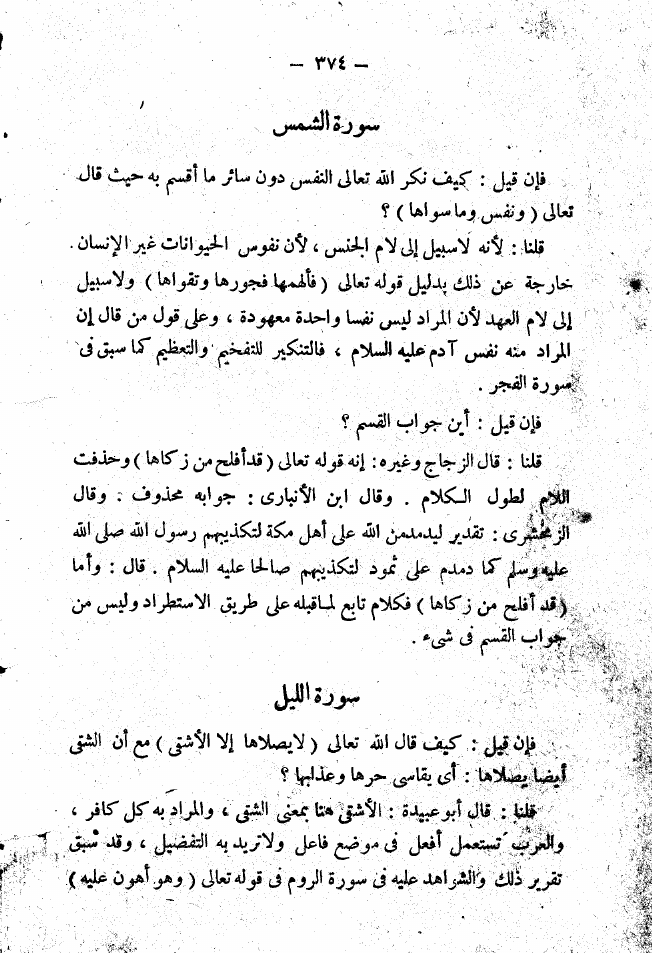 — ٣٧٤ —
سورة الشمس
فإن قيل : كيف نكر الله تعالى النفس دون سائر ما أقسم به حيث قال
تعالى ( ونفس وما سواها ) ؟
قلنا : لأنه لاسبيل إلى لام الجنس ، لأن نفوس الحيوانات غير الإنسان
خارجة عن ذلك بدليل قوله تعالى ( فألهمها فجورها وتقواها ) ولاسبيل
إلى لام العهد لأن المراد ليس نفسا واحدة معهودة ، وعلى قول من قال إن
المراد منه نفس آدم عليه السلام ، فالتنكير للتفخيم والتعظيم كما سبق فى
سورة الفجر .
فإن قيل : أين جواب القسم ؟
قلنا : قال الزجاج وغيره : إنه قوله تعالى ( قد أفلح من زكاها ) وحذفت
اللام لطول الكلام . وقال ابن الأنبارى : جوابه محذوف . وقال
الزمخشرى : تقدير ليدمدمن الله على أهل مكة لتكذيبهم رسول الله صلى الله
عليه وسلم كما دمدم على ثمود لتكذيبهم صالحا عليه السلام . قال : وأما
( قد أفلح من زكاها ) فكلام تابع لما قبله على طريق الاستطراد وليس من
جواب القسم فى شىء .
سورة الليل
فإن قيل : كيف قال الله تعالى ( لايصلاها إلا الأشقى ) مع أن الشقى
أيضا يصلاها : أى يقاسى حرها وعذابها ؟
قلنا : قال أبو عبيدة : الأشقى هنا بمعنى الشقى ، والمراد به كل كافر ،
والعرب تستعمل أفعل فى موضع فاعل ولاتريد به التفضيل ، وقد سبق
تقرير ذلك والشواهد عليه فى سورة الروم فى قوله تعالى ( وهو أهون عليه )